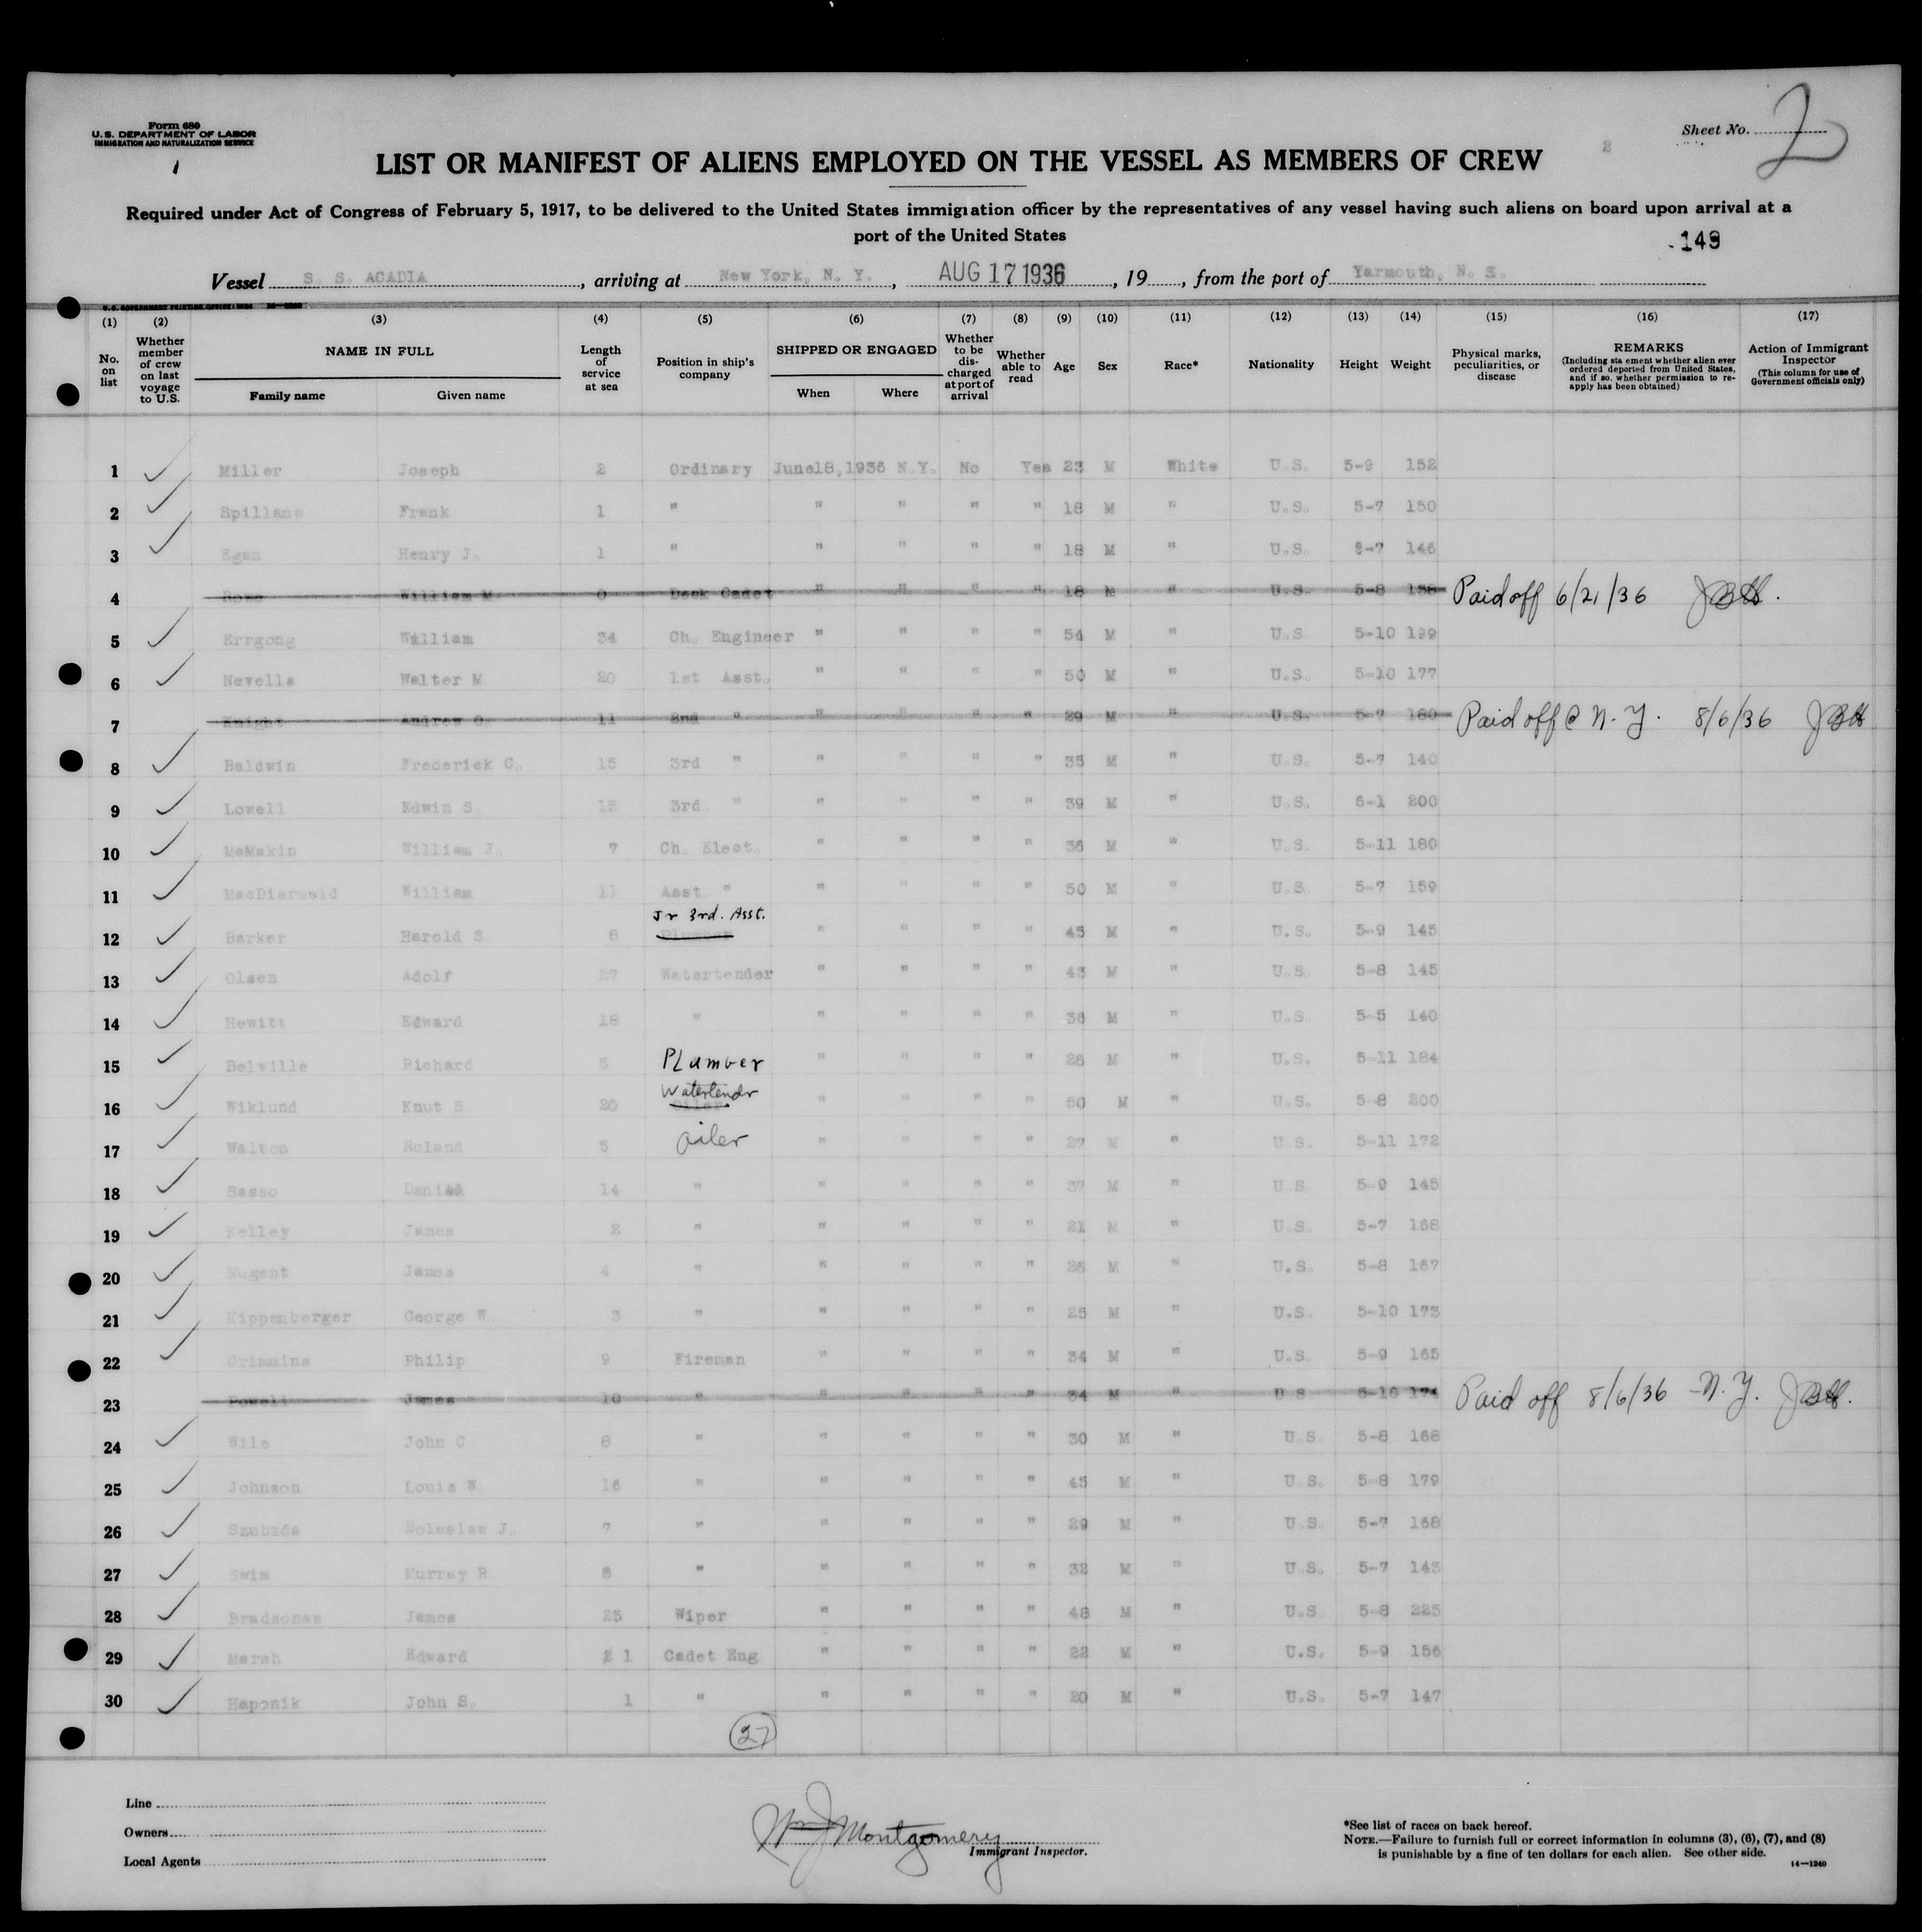 Form 680
U. S. DEPARTMENT OF LABOR
IMMIGRATION AND NATURALIZATION SERVICE
Sheet No. 2
2
LIST OR MANIFEST OF ALIENS EMPLOYED ON THE VESSEL AS MEMBERS OF CREW
Required under Act of Congress of February 5, 1917, to be delivered to the United States immigration officer by the representatives of any vessel having such aliens on board upon arrival at a
port of the United States
149
Vessel S. S. ACADIA, arriving at New York, N. Y., AUG 17 1936, 19, from the port of Yarmouth, N. S.
(1) (2) (3) (4) (5) (6) (7) (8) (9) (10) (11) (12) (13) (14) (15) (16) (17)
No. on list
Whether member of crew on last voyage to U.S.
NAME IN FULL
Family name Given name
Length of service at sea
Position in ship's company
SHIPPED OR ENGAGED
When Where
Whether to be discharged at port of arrival
Whether able to read
Age Sex Race* Nationality Height Weight
Physical marks, peculiarities, or disease
REMARKS
(Including statement whether alien ever ordered deported from United States, and if so, whether permission to reapply has been obtained)
Action of Immigrant Inspector
(This column for use of Government officials only)
1 Miller Joseph 2 Ordinary June18,1936 N.Y. No Yes 23 M White U.S. 5-9 152
2 Spillane Frank 1 " " " " " 18 M " U.S. 5-7 150
3 Egan Henry J. 1 " " " " " 18 M " U.S. 5-7 146
4 Rowe William M 0 Deck Cadet " " " " 18 M " U.S. 5-8 Paid off 6/21/36
5 Errgong William 34 Ch. Engineer " " " " 54 M " U.S. 5-10 199
6 Nevells Walter M 20 1st Asst. " " " " 50 M " U.S. 5-10 177
7 Knight Andrew O. 11 2nd " " " " " 29 M " U.S. 5-7 160 Paid off @ N. Y. 8/6/36
8 Baldwin Frederick C. 15 3rd " " " " " 35 M " U.S. 5-7 140
9 Lowell Edwin S. 15 3rd " " " " " 39 M " U.S. 6-1 200
10 McMakin William J. 7 Ch. Elect. " " " " 36 M " U.S. 5-11 180
11 MacDiarmaid William 11 Asst. " " " " " 50 M " U.S. 5-7 159
12 Barker Harold S 8 Plumber Jr 3rd. Asst. " " " " 45 M " U.S. 5-9 145
13 Olsen Adolf 27 Watertender " " " " 43 M " U.S. 5-8 145
14 Hewitt Edward 18 " " " " " 36 M " U.S. 5-5 140
15 Belville Richard 5 Plumber " " " " 26 M " U.S. 5-11 184
16 Wiklund Knut S 20 Oiler Watertendr " " " " 50 M " U.S. 5-8 200
17 Walton Roland 5 oiler " " " " 27 M " U.S. 5-11 172
18 Sasso 14 " " " " " 37 M " U.S. 5-9 145
19 Kelley James 2 " " " " " 21 M " U.S. 5-7 168
20 Nugent James 4 " " " " " 26 M " U.S. 5-8 167
21 Kippenberger George W. 3 " " " " " 25 M " U.S. 5-10 173
22 Crimmins Philip 9 Fireman " " " " 34 M " U.S. 5-9 165
23 Powell James 10 " " " " " 34 M " U.S. 5-10 174 Paid off 8/6/36 - N. Y.
24 Wile John C 8 " " " " " 30 M " U.S. 5-8 168
25 Johnson Louis W. 16 " " " " " 45 M " U.S. 5-8 179
26 Szubzda Boleslaw J. 7 " " " " " 29 M " U.S. 5-7 168
27 Swim Murray R. 8 " " " " " 32 M " U.S. 5-7 143
28 James 25 Wiper " " " " 48 M " U.S. 5-8 225
29 Marsh Edward 1 Cadet Eng " " " " 22 M " U.S. 5-9 156
30 Haponik John S. 1 " " " " " 20 M " U.S. 5-7 147
27
Line
Owners
Local Agents
Wm J Montgomery
Immigrant Inspector.
*See list of races on back hereof.
NOTE.—Failure to furnish full or correct information in columns (3), (6), (7), and (8)
is punishable by a fine of ten dollars for each alien. See other side.
14—1240